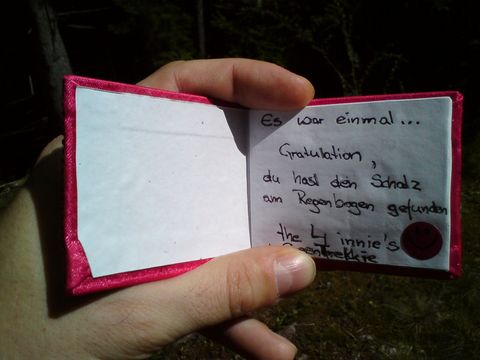 Es war einmal...
Gratulation,
du hast den Schatz
am Regenbogen gefunden
the 4 innie's